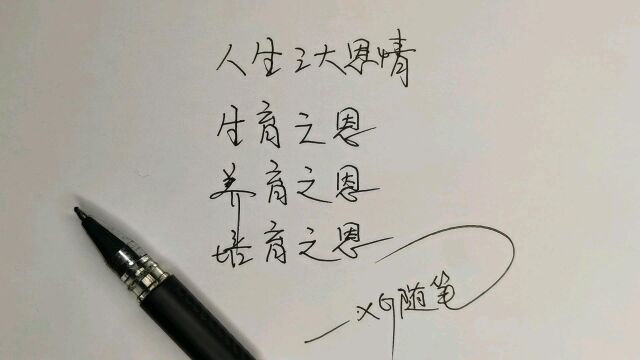 人生三大恩情
生育之恩
养育之恩
培育之恩
随笔